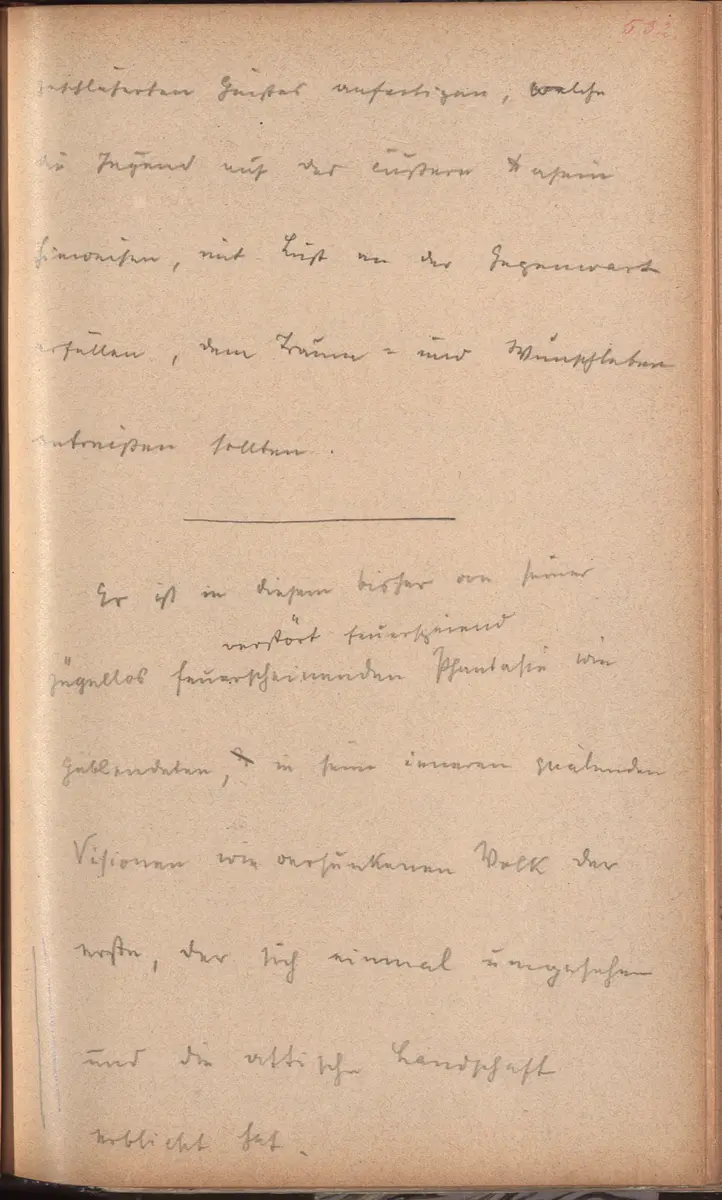 532.
geschläferten Geistes anfertigen, welche
die Jugend auf das äußere Dasein
hinweisen, mit Lust an der Gegenwart
erfüllen, dem Traum- und Wunschleben
entreißen sollten.
Er ist in diesem bisher von seiner
verstört feuerspeiend
zügellos feuerscheinenden Phantasie wie
Geblendeten, in seine inneren quälenden
Visionen wie versunkenen Volk der
erste, der sich einmal umgesehen
und die attische Landschaft
erblickt hat.